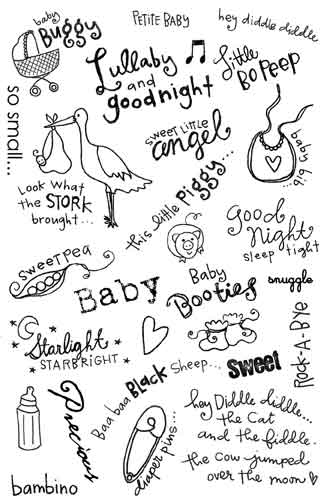 baby
Buggy
PETITE BABY
hey diddle diddle
Lullaby
and
goodnight
Little
BO PEEP
so small...
sweet little
angel
baby
bib
Look what
the STORK
brought...
this little Piggy...
Good
Night
sleep tight
sweet pea
Baby
Baby
Booties
snuggle
Starlight
STARBRIGHT
Baa baa BLACK sheep...
Sweet
ROCK-A-BYE
Precious
diaper pins...
hey Diddle diddle...
the Cat
and the fiddle.
the cow jumped
over the moon
bambino